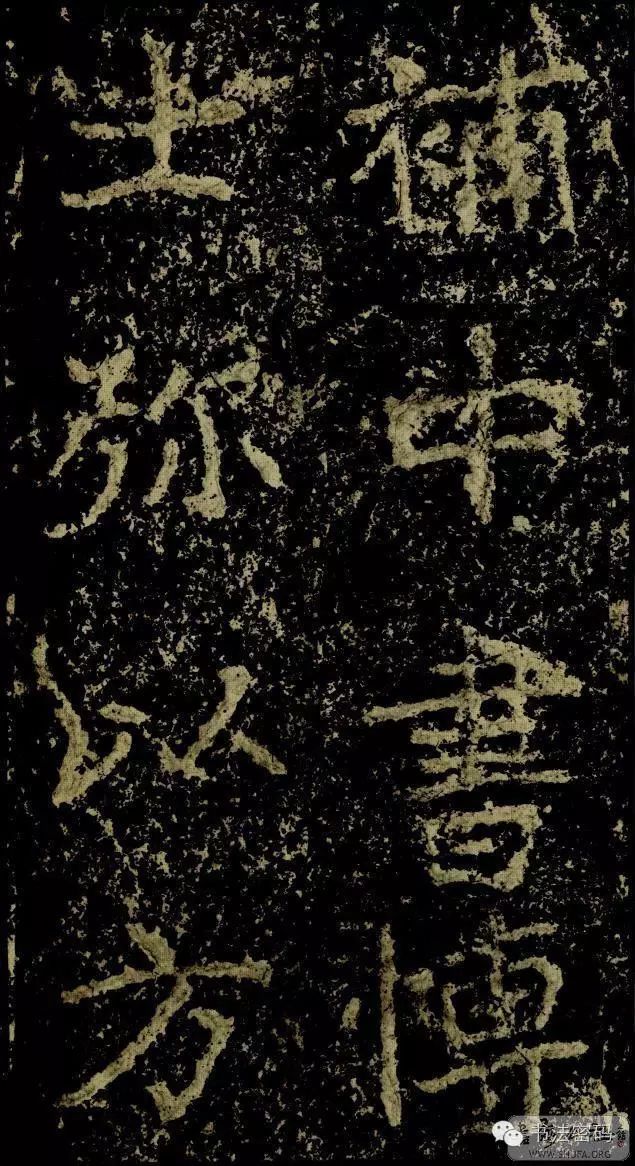 補中書博
士弥以方
书法密码
WWW.SHUFA.ORG